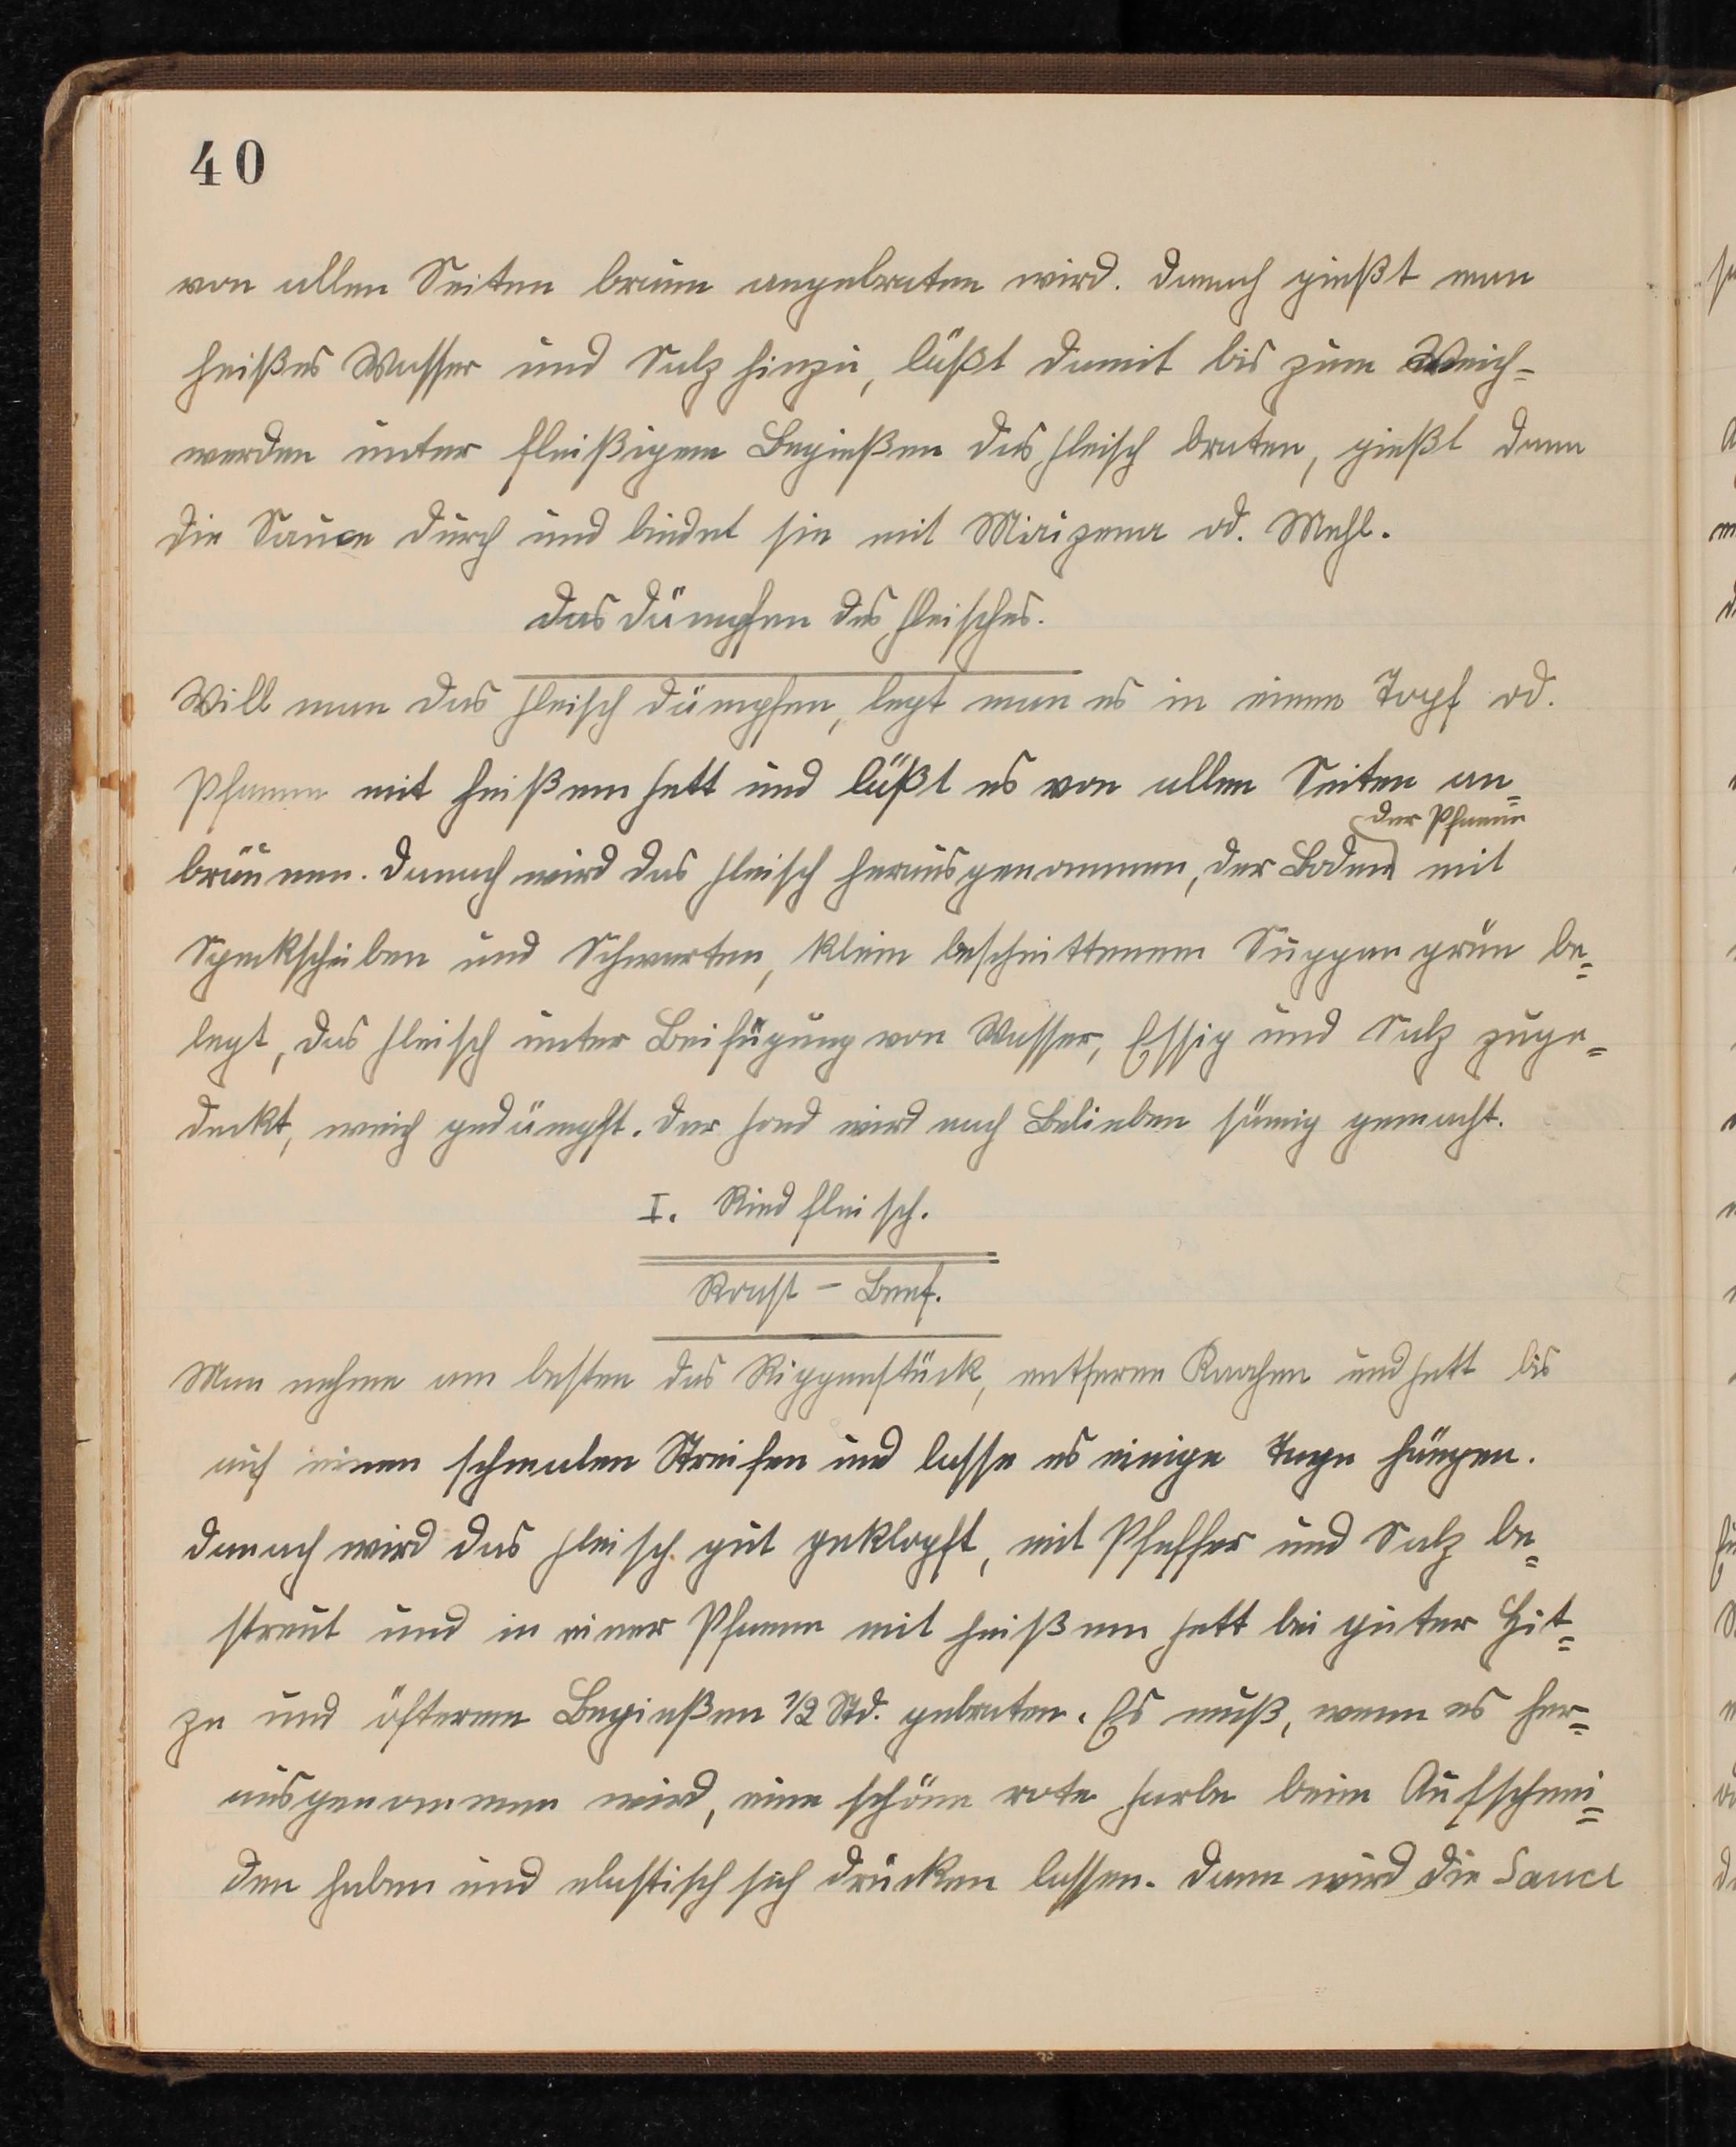 40
von allen Seiten braun angebraten wird. Danach gießt man
heißes Wasser und Salz hinzu, läßt damit bis zum Weich-
werden unter fleißigem Begießen das Fleisch braten, gießt dann
die Sauce durch und bindet sie mit Maizena od. Mehl.
Das Dämpfen des Fleisches.
Will man das Fleisch dämpfen, legt man es in einen Topf od.
Pfanne mit heißem Fett und läßt es von allen Seiten an=
der Pfanne
bräunen. Danach wird das Fleisch herausgenommen, der Boden mit
Speckscheiben und Schwarten, klein beschnittenem Suppengrün be=
legt, das Fleisch unter Beifügung von Wasser, Essig und Salz zuge=
deckt, weich gedämpft. Der Fond wird nach Belieben sämig gemacht.
I. Rindfleisch.
Roast-Beef.
Man nehme am besten das Rippenstück, entferne Knochen und Fett bis
auf einen schmalen Streifen und lasse es einige Tage hängen.
Danach wird das Fleisch gut geklopft, mit Pfeffer und Salz be=
streut und in einer Pfanne mit heißem Fett bei guter Hit=
ze und öfterem Begießen 1/2 Std. gebraten. Es muß, wenn es her=
ausgenommen wird, eine schöne rote Farbe beim Aufschnei=
den haben und elastisch sich drücken lassen. Dann wird die Sauce